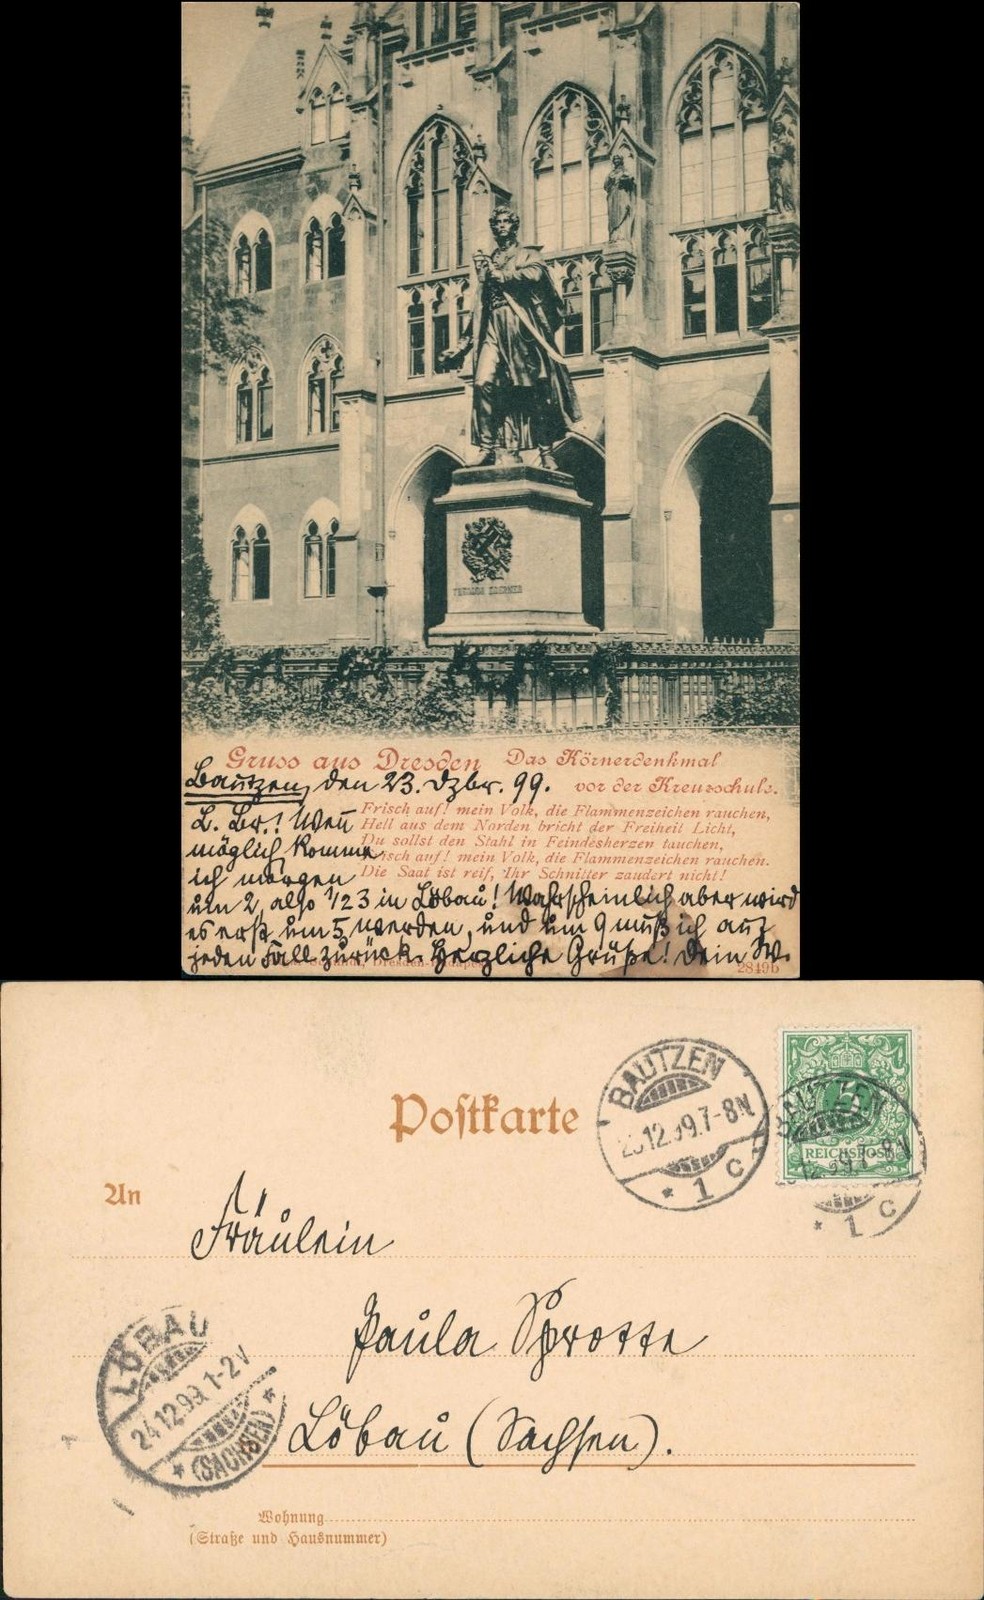 THEODOR KOERNER
Gruss aus Dresden Das Körnerdenkmal
vor der Kreuzschule.
Bautzen, den 23. Dzbr. 99.
Frisch auf! mein Volk, die Flammenzeichen rauchen,
Hell aus dem Norden bricht der Freiheit Licht,
Du sollst den Stahl in Feindesherzen tauchen,
Frisch auf! mein Volk, die Flammenzeichen rauchen.
Die Saat ist reif, Ihr Schnitter zaudert nicht!
L. Br.! Wenn
möglich, komme
ich morgen
um 2, also 1/23 in Löbau! Wahrscheinlich aber wird
es erst um 5 werden, und um 9 muß ich auf
jeden Fall zurück. Herzliche Grüße! Dein W.
Dresden-Budapest
28496
Postkarte
BAUTZEN
23.12.99.7-8N
* 1 c
REICHSPOST
5
BAUTZEN
12.99.7-8N
* 1 c
An
Fräulein
Paula Sprotte
Löbau (Sachsen).
LÖBAU
24.12.99.1-2V
* (SACHSEN) *
Wohnung
(Straße und Hausnummer)